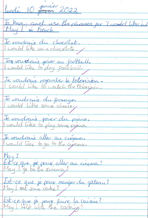 Lundi 10 janvier 2022
Je voudrais du chocolat.
I would like some chocolate.
Je voudrais jouer au football
I would like to play football.
Je voudrais regarder la television.
I would like to watch the television.
Je voudrais du fromage.
I would like some cheese.
Je voudrais jouer du piano.
I would like to play some piano.
Je voudrais aller au cinema.
I would like to go to the cinema.
May I
Est-ce que je peux aller au cinema?
May I go to the cinema?
Est-ce que je peux manger du gateau?
May I eat some cake?
Est-ce que je peux faire la cuisine?
May I help with the cooking?